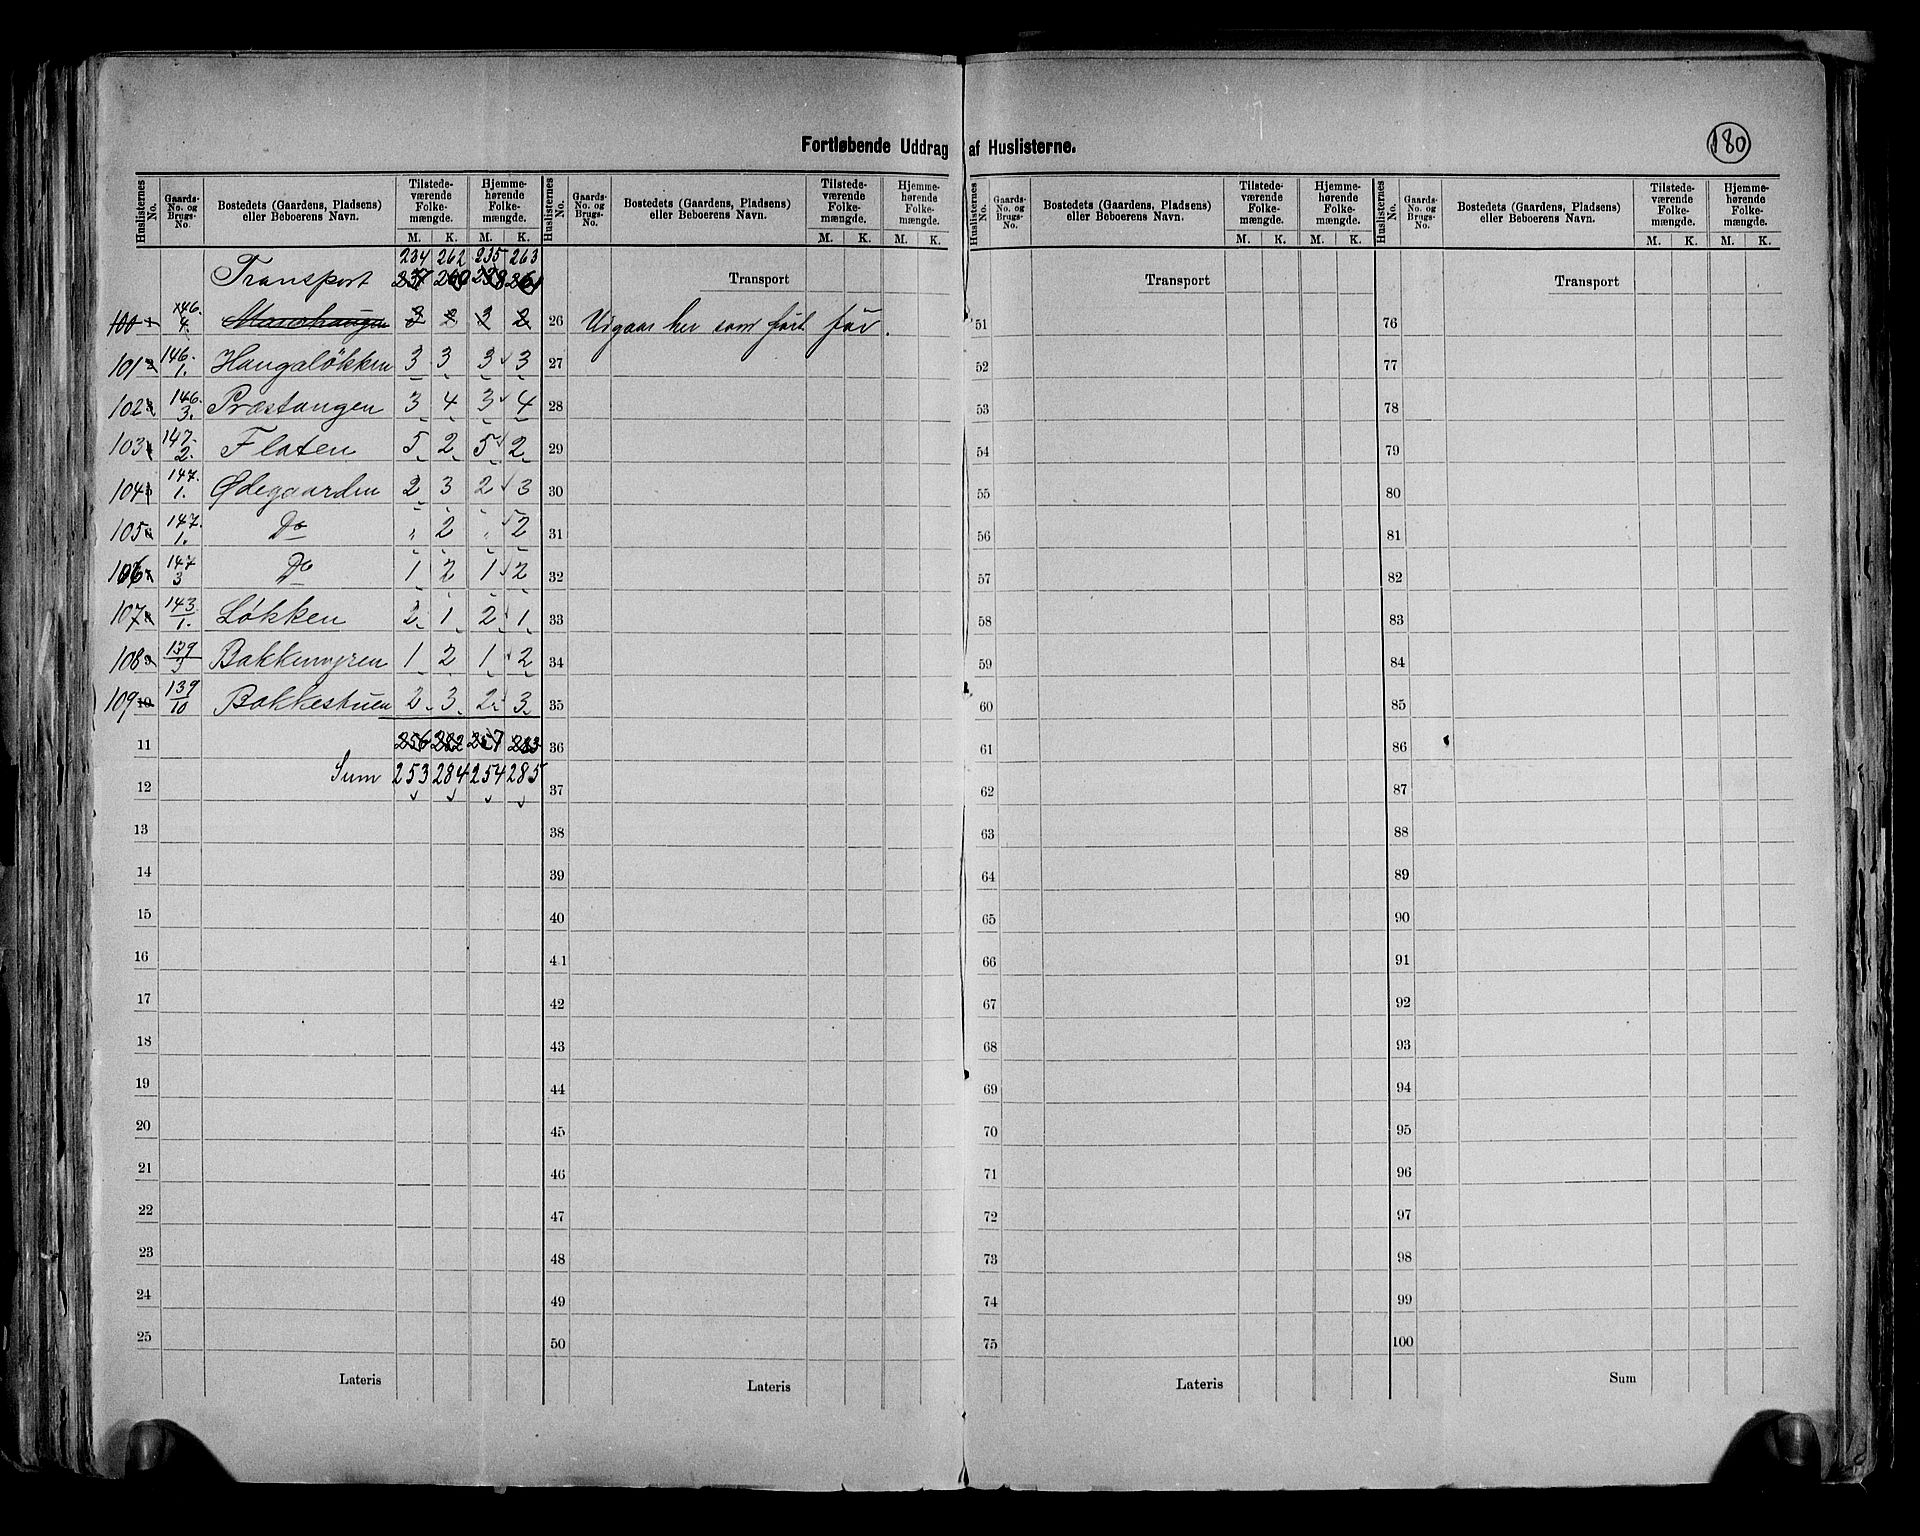 Fortløbende Uddrag af Huslisterne.
180
Huslisternes No. Gaards-No. og Brugs-No. Bostedets (Gaardens, Pladsens) eller Beboerens Navn. Tilstedeværende Folkemængde. Hjemmehørende Folkemængde.
M. K. M. K.
234 262 235 263
Transport 237 260 238 261
100 1 146. 4. 3 2 3 2
101 2 146. 1. Haugaløkken 3 3 3 3
102 3 146. 3. Præstangen 3 4 3 4
103 4 147. 2. Flaten 5 2 5 2
104 5 147. 1. Ødegaarden 2 3 2 3
105 6 147. 1. Do " 2 " 2
106 7 147 3 Do 1 2 1 2
107 8 143. 1. Løkken 2 1 2 1
108 9 139 3 Bakkemyren 1 2 1 2
109 10 139 10 Bakkestuen 2 3 2 3
11 256 282 257 283
12 Sum 253 284 254 285
13
14
15
16
17
18
19
20
21
22
23
24
25
Lateris
Huslisternes No. Gaards-No. og Brugs-No. Bostedets (Gaardens, Pladsens) eller Beboerens Navn. Tilstedeværende Folkemængde. Hjemmehørende Folkemængde.
M. K. M. K.
Transport
26 Udgaar her som ført før.
27
28
29
30
31
32
33
34
35
36
37
38
39
40
41
42
43
44
45
46
47
48
49
50
Lateris
Huslisternes No. Gaards-No. og Brugs-No. Bostedets (Gaardens, Pladsens) eller Beboerens Navn. Tilstedeværende Folkemængde. Hjemmehørende Folkemængde.
M. K. M. K.
Transport
51
52
53
54
55
56
57
58
59
60
61
62
63
64
65
66
67
68
69
70
71
72
73
74
75
Lateris
Huslisternes No. Gaards-No. og Brugs-No. Bostedets (Gaardens, Pladsens) eller Beboerens Navn. Tilstedeværende Folkemængde. Hjemmehørende Folkemængde.
M. K. M. K.
Transport
76
77
78
79
80
81
82
83
84
85
86
87
88
89
90
91
92
93
94
95
96
97
98
99
100
Sum